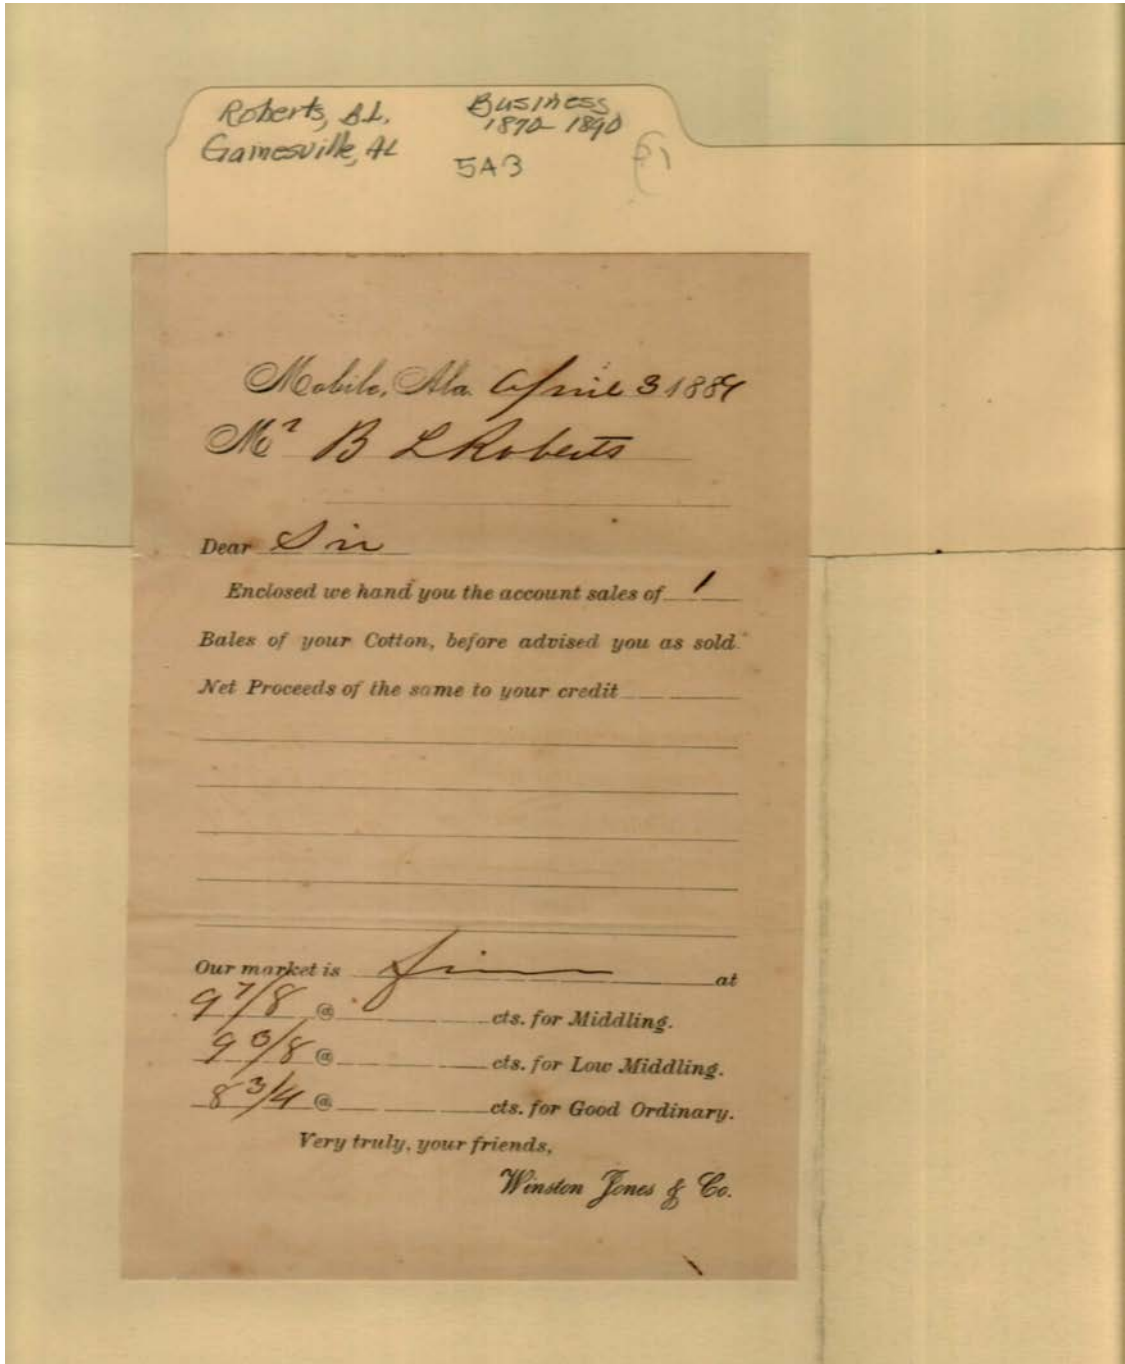 Roberts, B.L. Business
1870-1890
Gainesville, AL
5A3
Mobile, Ala. April 3 188
Mr B L Roberts
Dear Sir
Enclosed we hand you the account sales of 1
Bales of your Cotton, before advised you as sold.
Net Proceeds of the same to your credit
Our market is firm at
9 7/8 @ cts. for Middling.
9 /8 @ cts. for Low Middling.
8 3/4 @ cts. for Good Ordinary.
Very truly, your friends,
Winston Jones & Co.